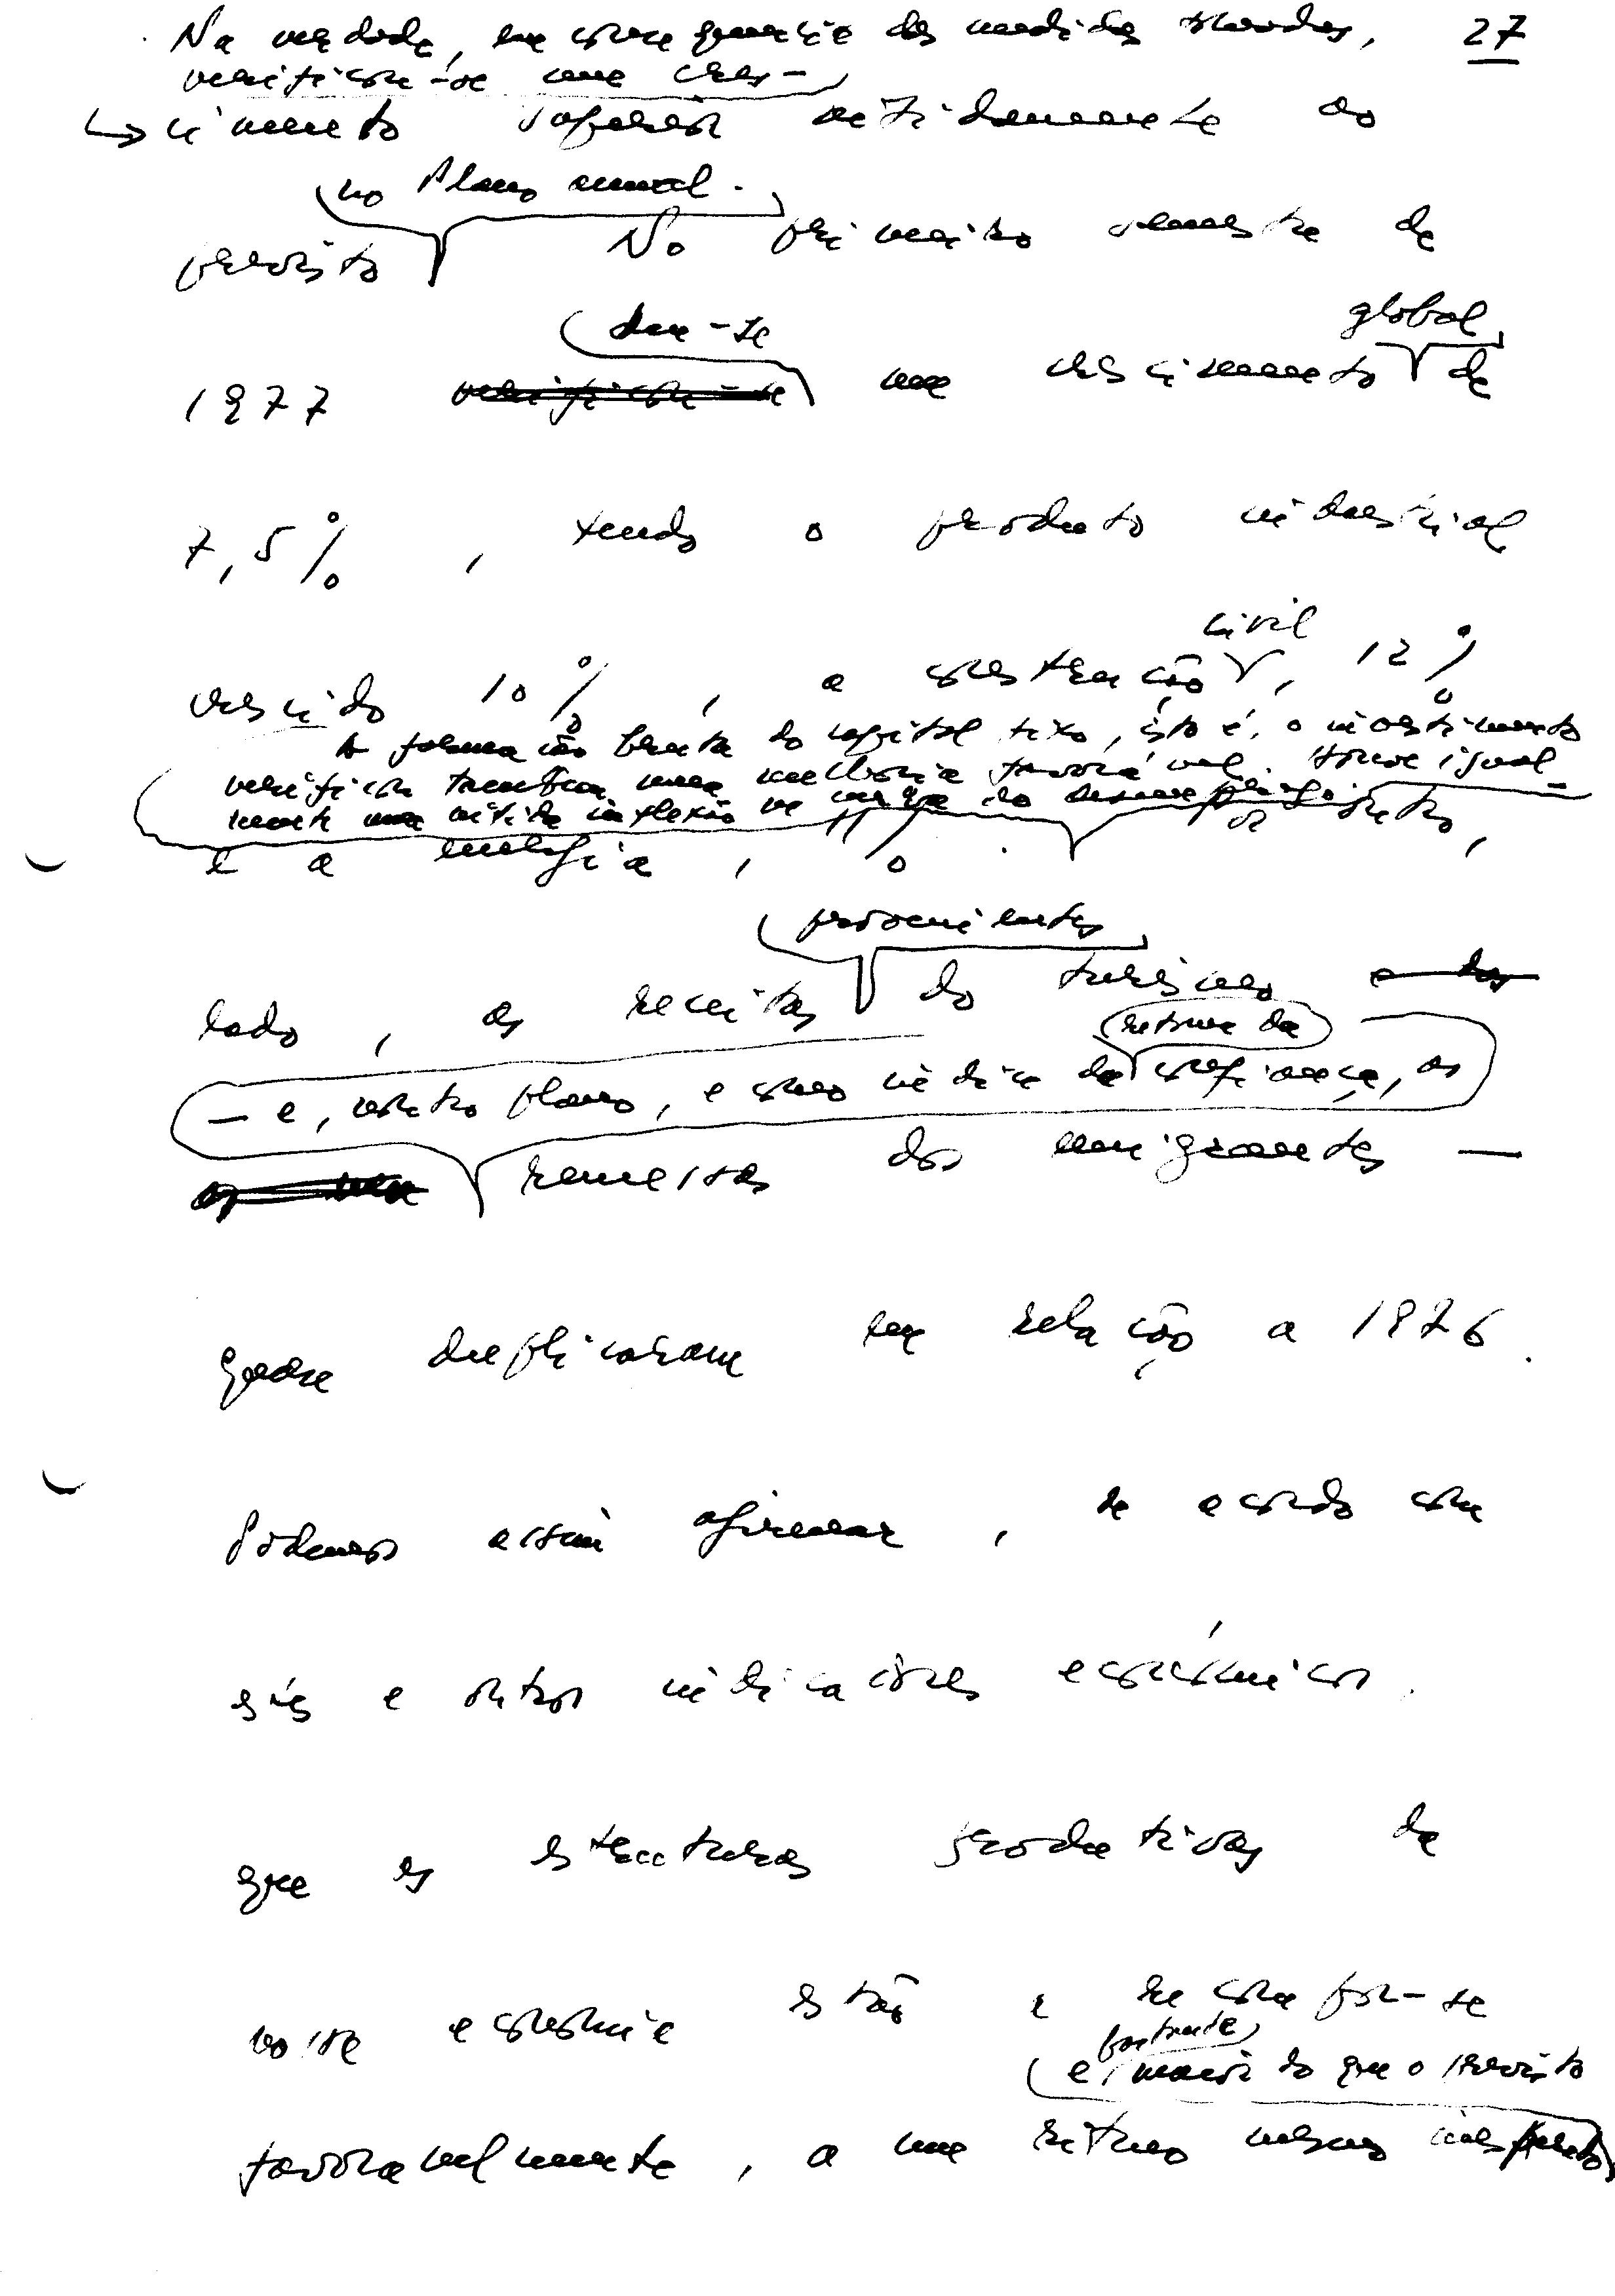 Na verdade, em consequência das medidas tomadas, 27
verificou-se um cres-
cimento superior nitidamente ao
no Plano anual.
previsto No primeiro semestre de
deu-se global
1977 verificou-se um crescimento de
7,5%, tendo o produto industrial
civil
crescido 10%, a construção, 12%
A formação bruta do capital fixo, isto é, o investimento
verificou também uma melhoria favorável. Houve igual-
mente uma nítida inflexão na do desemprego.
e a energia, 11%. outro,
provenientes
lado, as receitas do turismo e das
retorno da
— e, noutro plano, e como índice de confiança, as
remessas dos emigrantes —
quase duplicaram em relação a 1976.
Podemos assim afirmar, de acordo com
estes e outros indicadores económicos,
que as estruturas produtivas da
nossa economia estão a recompor-se
bastante
e maior do que o previsto
favoravelmente, a um ritmo mesmo